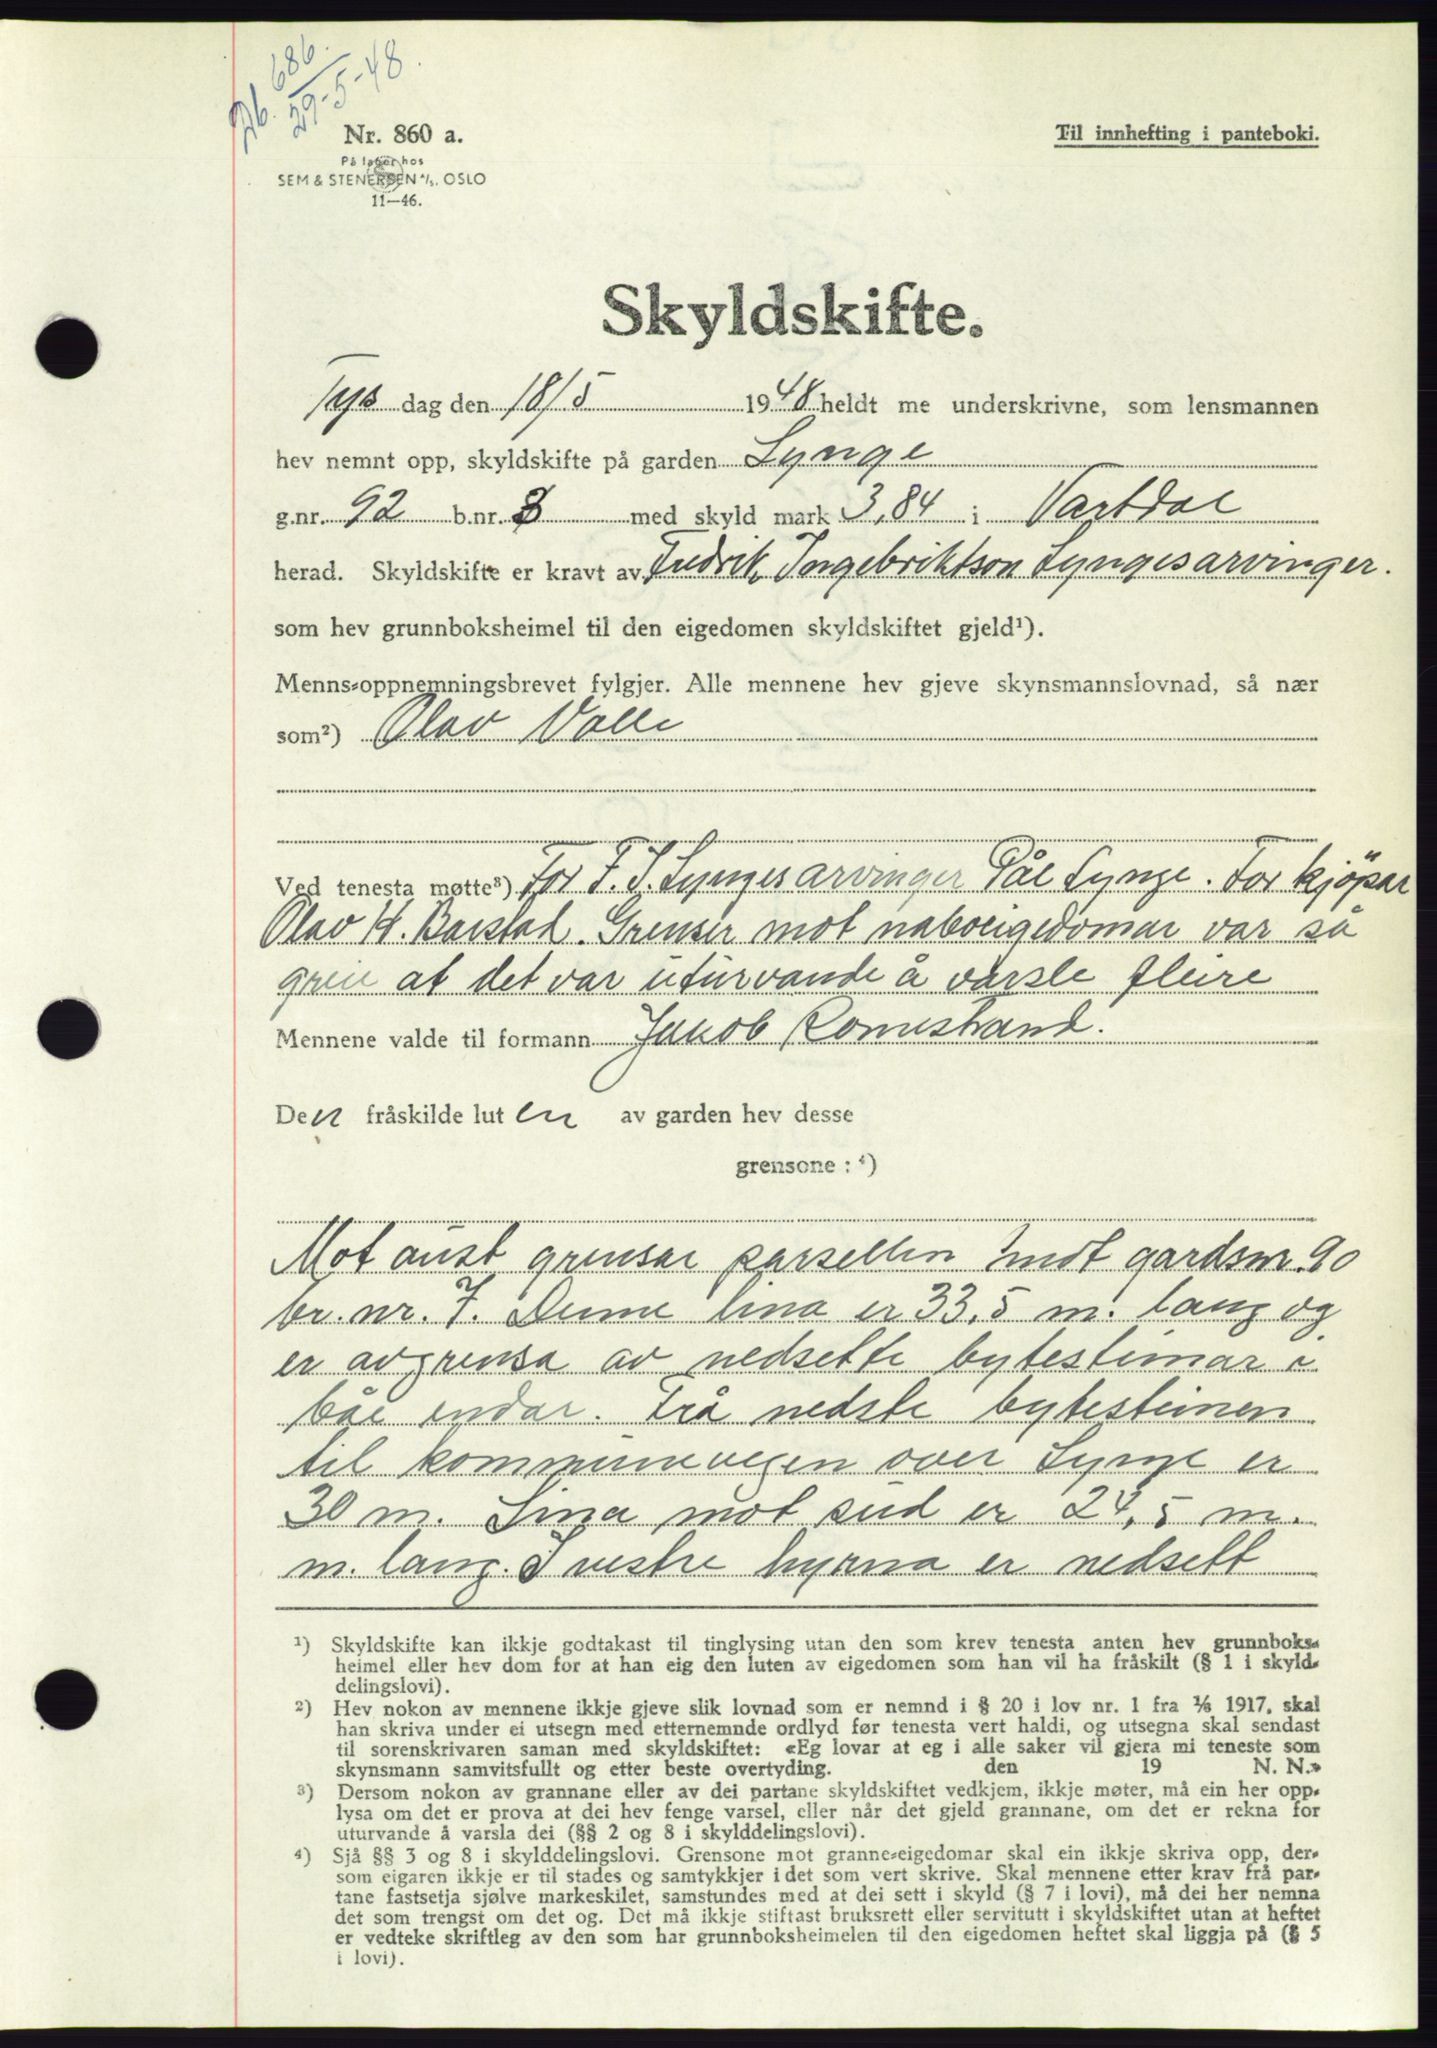 Db. 686.
29-5-48.
Nr. 860 a.
På lager hos
SEM & STENERSEN A/S. OSLO
11—46.
Til innhefting i panteboki.
Skyldskifte.
Tys dag den 18/5 1948 heldt me underskrivne, som lensmannen
hev nemnt opp, skyldskifte på garden Lynge
g.nr. 92 b.nr. 3 med skyld mark 3,84 i Vartdal
herad. Skyldskifte er kravt av Fredrik Ingebriktson Lyngesarvinger.
som hev grunnboksheimel til den eigedomen skyldskiftet gjeld¹).
Menns-oppnemningsbrevet fylgjer. Alle mennene hev gjeve skynsmannslovnad, så nær
som²) Olav Valle
Ved tenesta møtte³) For F. I. Lyngesarvinger Pål Lynge. For kjöpar
Olav H. Barstad. Grenser mot naboeigedomar var så
greie at det var uturvande å varsle fleire
Mennene valde til formann Jakob Romestrand.
Den fråskilde luten av garden hev desse
grensone : ⁴)
Mot aust grensar parsellen mot gardsnr. 90
br. nr. 7. Denne lina er 33,5 m. lang og
er avgrensa av nedsette bytesteinar i
båe endar. Frå nedste bytesteinen
til kommunevegen over Lynge er
30 m. Lina mot sud er 24,5 m.
m. lang. I vestre hyrna er nedsett
¹) Skyldskifte kan ikkje godtakast til tinglysing utan den som krev tenesta anten hev grunnboks-
heimel eller hev dom for at han eig den luten av eigedomen som han vil ha fråskilt (§ 1 i skyld-
delingslovi).
²) Hev nokon av mennene ikkje gjeve slik lovnad som er nemnd i § 20 i lov nr. 1 fra ⅟₈ 1917, skal
han skriva under ei utsegn med etternemnde ordlyd før tenesta vert haldi, og utsegna skal sendast
til sorenskrivaren saman med skyldskiftet: «Eg lovar at eg i alle saker vil gjera mi teneste som
skynsmann samvitsfullt og etter beste overtyding. den 19 N. N.»
³) Dersom nokon av grannane eller av dei partane skyldskiftet vedkjem, ikkje møter, må ein her opp-
lysa om det er prova at dei hev fenge varsel, eller når det gjeld grannane, om det er rekna for
uturvande å varsla dei (§§ 2 og 8 i skylddelingslovi).
⁴) Sjå §§ 3 og 8 i skylddelingslovi. Grensone mot granne-eigedomar skal ein ikkje skriva opp, der-
som eigaren ikkje er til stades og samtykkjer i det som vert skrive. Skal mennene etter krav frå par-
tane fastsetja sjølve markeskilet, samstundes med at dei sett i skyld (§ 7 i lovi), må dei her nemna
det som trengst om det og. Det må ikkje stiftast bruksrett eller servitutt i skyldskiftet utan at heftet
er vedteke skriftleg av den som har grunnboksheimelen til den eigedomen heftet skal liggja på (§ 5
i lovi).